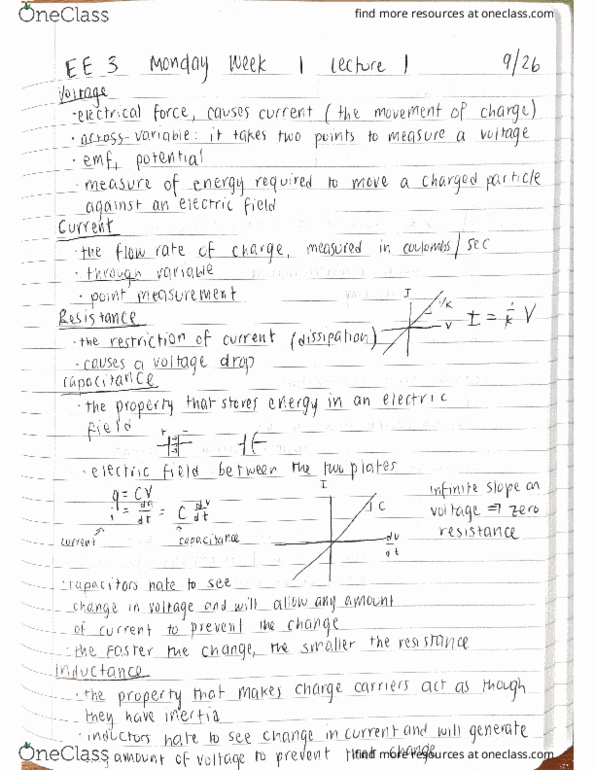 OneClass
find more resources at oneclass.com
EE 3 Monday Week 1 Lecture 1 9/26
Voltage
·electrical force, causes current (the movement of charge)
·across-variable: it takes two points to measure a voltage
·emf, potential
·measure of energy required to move a charged particle
against an electric field
Current
·the flow rate of charge, measured in coulombs/sec
·through variable
·point measurement
Resistance
I
1/R
V
I = 1/R V
·the restriction of current (dissipation)
·causes a voltage drop
capacitance
·the property that stores energy in an electric
field
+ -
·electric field between the two plates
q = CV
i = dq/dt = C dv/dt
current
capacitance
I
C
dv
dt
infinite slope on
voltage => zero
resistance
·capacitors hate to see
change in voltage and will allow any amount
of current to prevent the change
·the faster the change, the smaller the resistance
inductance
·the property that makes charge carriers act as though
they have inertia
·inductors hate to see change in current and will generate
amount of voltage to prevent that change
OneClass
find more resources at oneclass.com